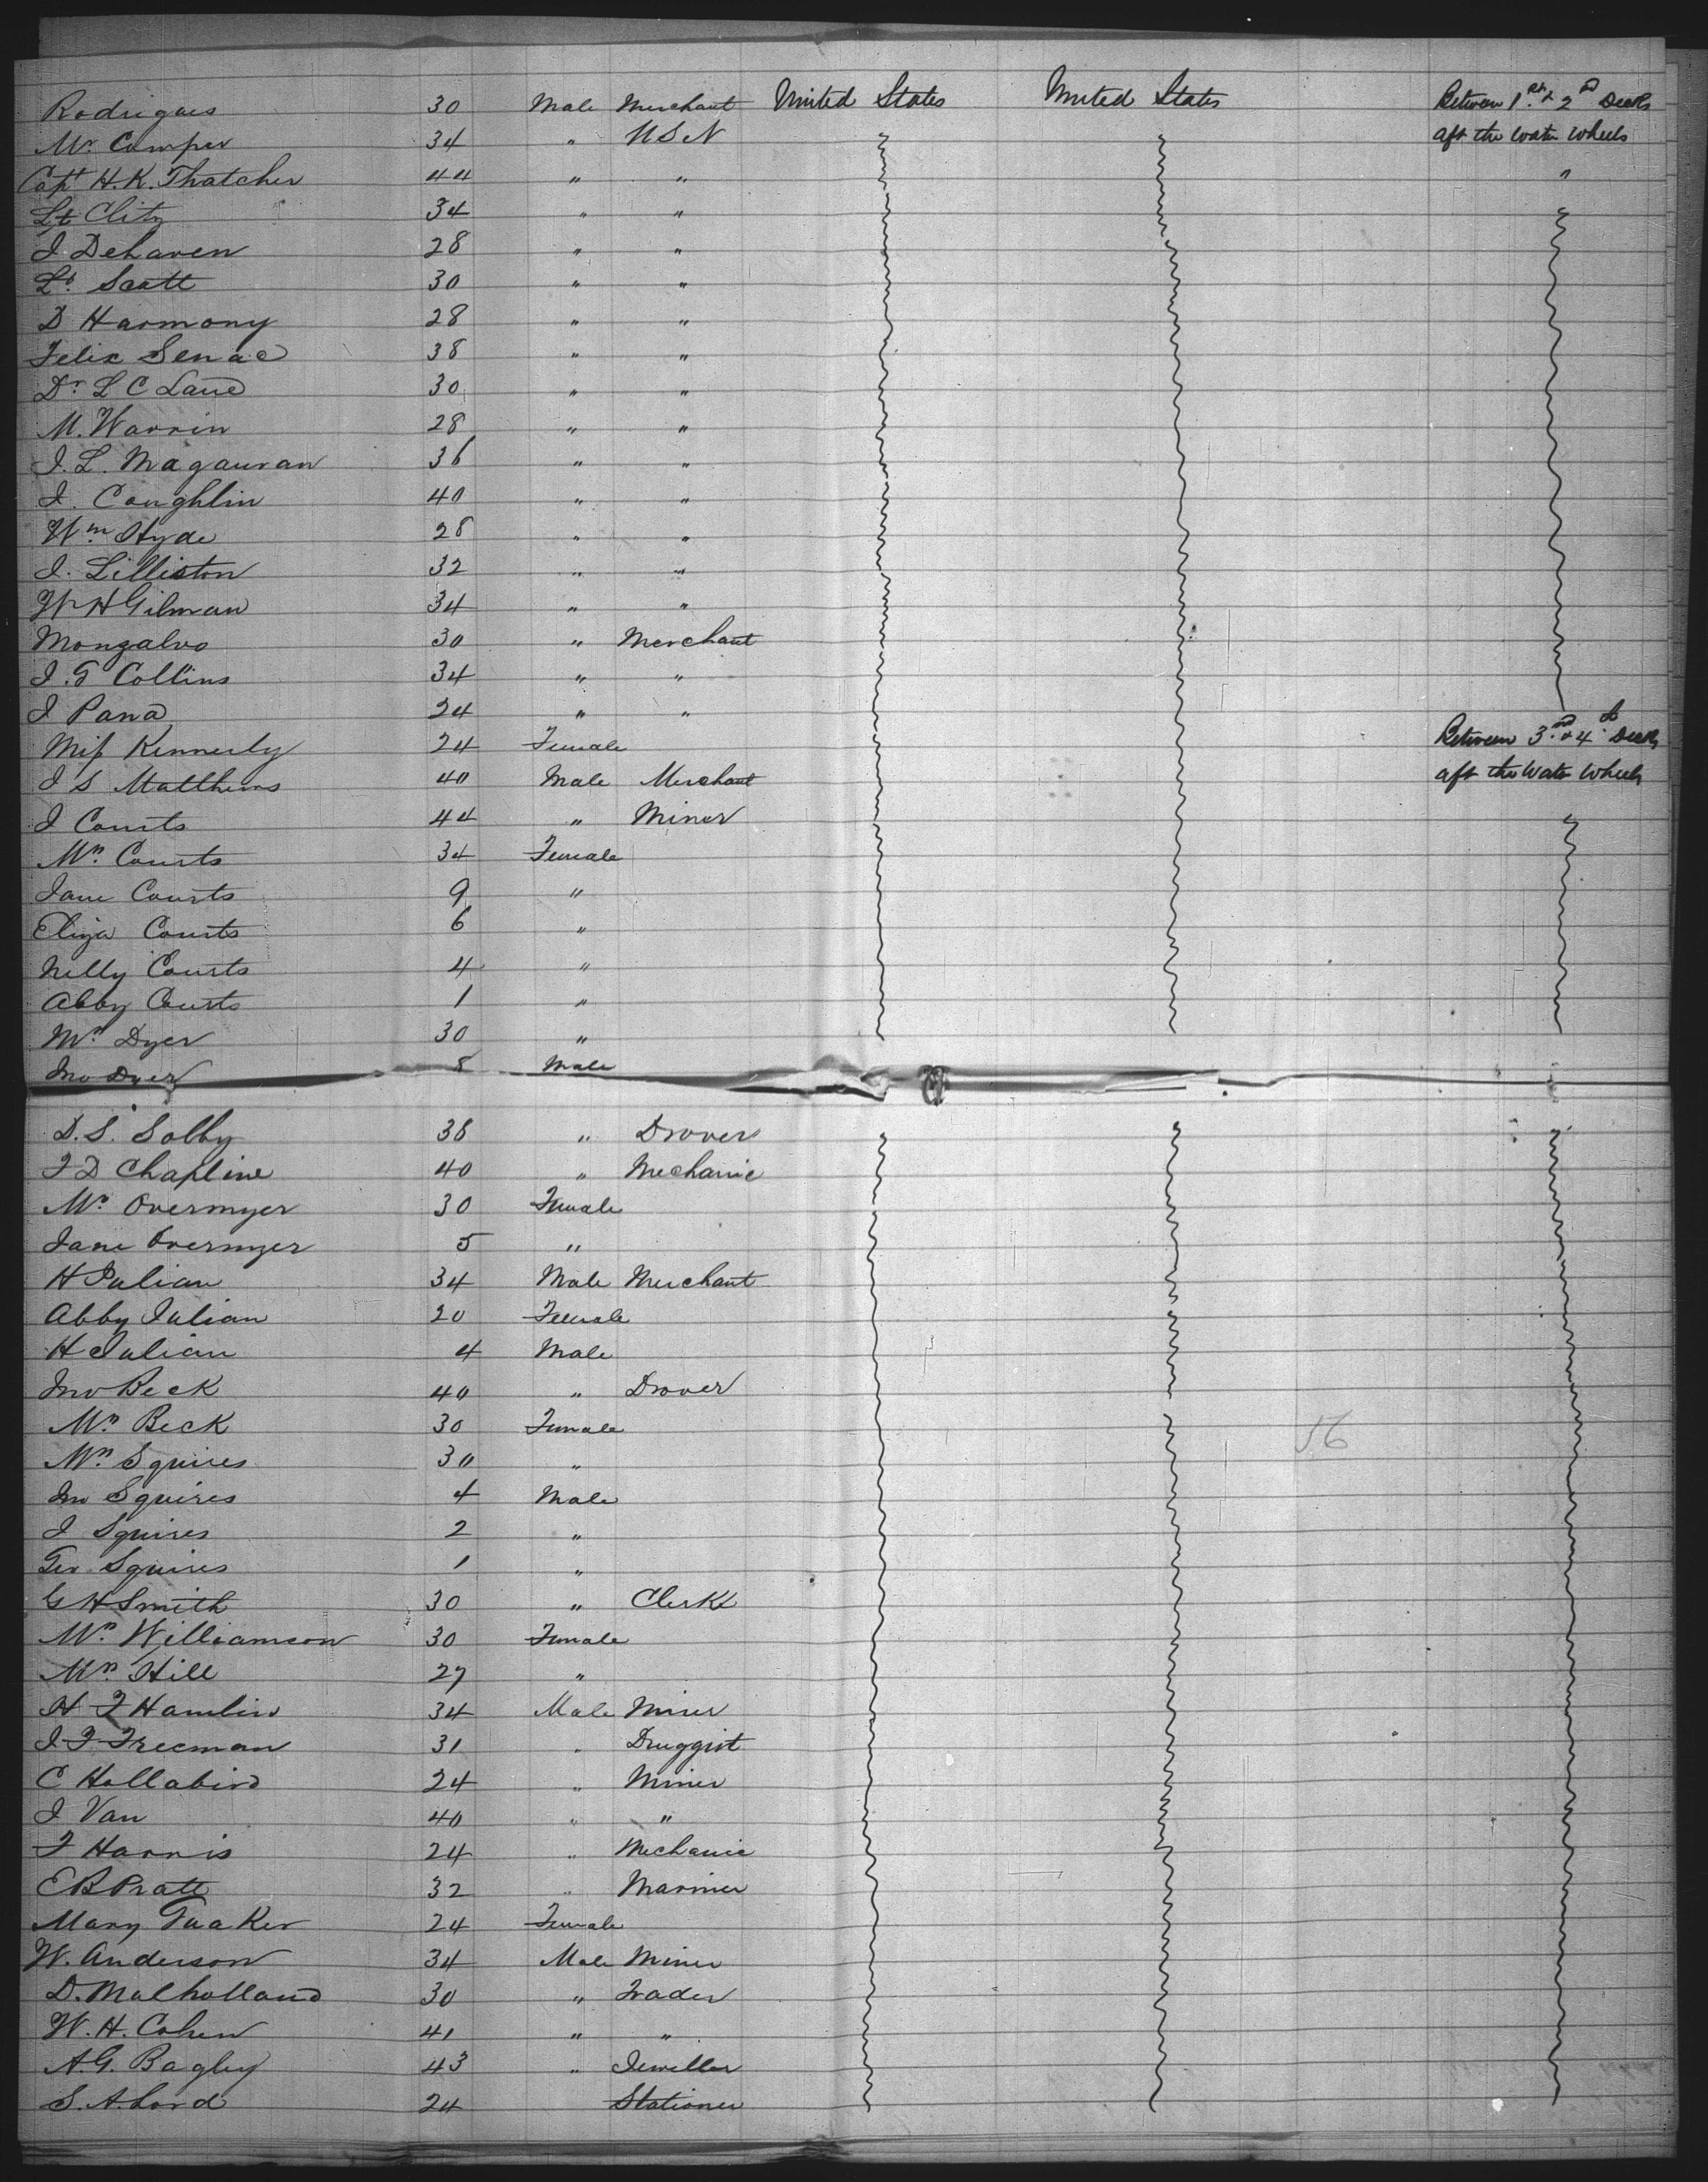 Rodrigues 30 Male Merchant United States United States Between 1st & 2nd Decks
Mr. Comper 34 " USN aft the water wheels
Capt H. K. Thatcher 44 " " "
Lt Clitz 34 " "
J. Dehaven 28 " "
Lt. Scott 30 " "
D Harmony 28 " "
Felix Senac 38 " "
Dr. L C Lane 30 " "
M. Warrin 28 " "
J. L. Magauran 36 " "
J. Coughlin 40 " "
Wm Hyde 28 " "
J. Lilliston 32 " "
W H Gilman 34 " "
Monzalvo 30 " Merchant
J. G Collins 34 " "
J Pana 24 " "
Miss Kennerly 24 Female Between 3rd & 4th Decks
J S Matthews 40 Male Merchant aft the Water Wheels
J Courts 44 " Miner
Mrs. Courts 34 Female
Jane Courts 9 "
Eliza Courts 6 "
Nelly Courts 4 "
Abby Courts 1 "
Mrs. Dyer 30 "
Jno Dyer 8 Male
D. S. Solby 38 " Drover
F D Chapline 40 " Mechanic
Mrs. Overmyer 30 Female
Jane Overmyer 5 "
H Julian 34 Male Merchant
Abby Julian 20 Female
H Julian 4 Male
Jno Beck 40 " Drover
Mrs. Beck 30 Female 56
Mrs. Squires 30 "
Jno Squires 4 Male
J Squires 2 "
Geo Squires 1 "
G H Smith 30 " Clerk
Mrs. Williamson 30 Female
Mrs. Hill 27 "
H F Hamlin 34 Male Miner
J F Freeman 31 " Druggist
C Hollabird 24 " Miner
J Van 40 " "
F Harris 24 " Mechanic
E B Pratt 32 " Mariner
Mary Tuaker 24 Female
W. Anderson 34 Male Miner
D. Mulholland 30 " Trader
W. H. Cohen 41 " "
A. G. Bagley 43 " Jeweller
S. A. Lord 24 Stationer